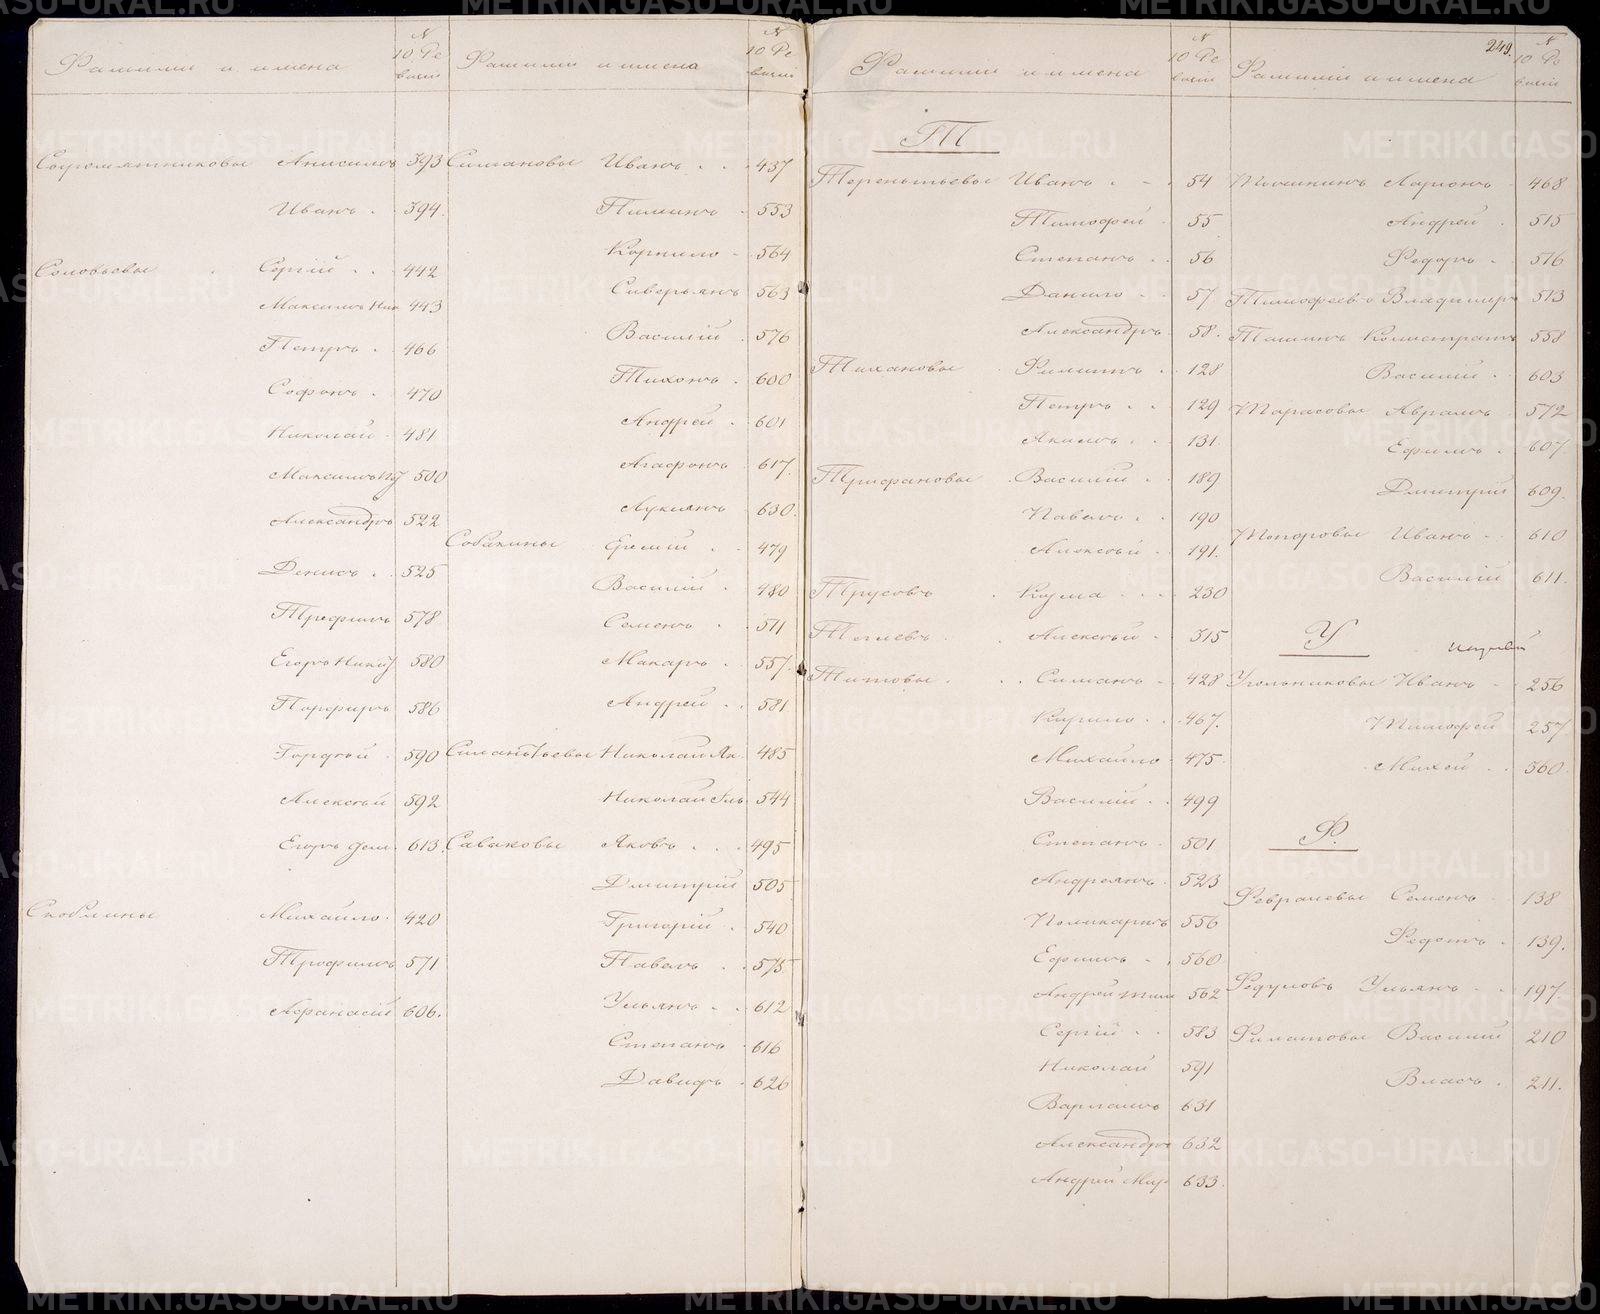 Фамилии и имена № 10 Ре визіи
Сыромятниковы Анисимъ 393
Иванъ 394
Соловьевы Сергій 442
Максимъ Ник 443
Петръ 466
Софонъ 470
Николай 481
Максимъ 500
Александръ 522
Денисъ 525
Трефилъ 578
Егоръ Никиф 580
Порфиръ 586
Гордѣй 590
Алексѣй 592
Егоръ 613
Скоблины Михайло 420
Трофимъ 571
Афанасій 606.
Фамиліи и имена № 10 Ре визіи
Симановы Иванъ 437
Пиминъ 553
Корнило 564
Сиверьянъ 563
Василій 576
Тихонъ 600
Андрей 601
Агафонъ 617.
Лукиянъ 630.
Собакины Еремій 479
Василій 480
Семенъ 511
Макаръ 557.
Андрей 581
Силантьевы Николай Як. 485
Николай Иль 544
Саваковы Яковъ 495
Дмитрій 505
Григорій 540
Павелъ 575
Ульянъ 612
Степанъ 616
Давидъ 626
Фамиліи и имена № 10 Ре визіи
Т
Терентьевы Иванъ 54
Тимофей 55
Степанъ 56
Данило 57
Александръ 58.
Тихановы Филиппъ 128
Петръ 129
Якимъ 131.
Трифановы Василій 189
Павелъ 190
Алексѣй 191.
Трусовъ Кузма 230
Алексѣй 315
Титовы Симанъ 428
Кирило 467.
Михайло 475
Василій 499
Степанъ 501
Андреянъ 523
Поликарпъ 556
Ефимъ 560
Андрей Тим 562
Сергій 583
Николай 591
Варламъ 631
Александръ 632
Андрей Мир 633.
249.
Фамиліи и имена № 10 Ре визіи
Ларіонъ 468
Андрей 515
Федоръ 516
Тимофеевъ Владимиръ 513
Каллистратъ 558
Василій 603
Тарасовы Аврамъ 572
Ефимъ 607
Дмитрій 609.
Топоровы Иванъ 610
Василій 611.
У
Угольниковы Иванъ 256
Тимофей 257
Михей 560.
Ф.
Февралевы Семенъ 138
Федотъ 139.
Федуловъ Ульянъ 197
Филатовы Василій 210
Власъ 211.
METRIKI.GASO-URAL.RU